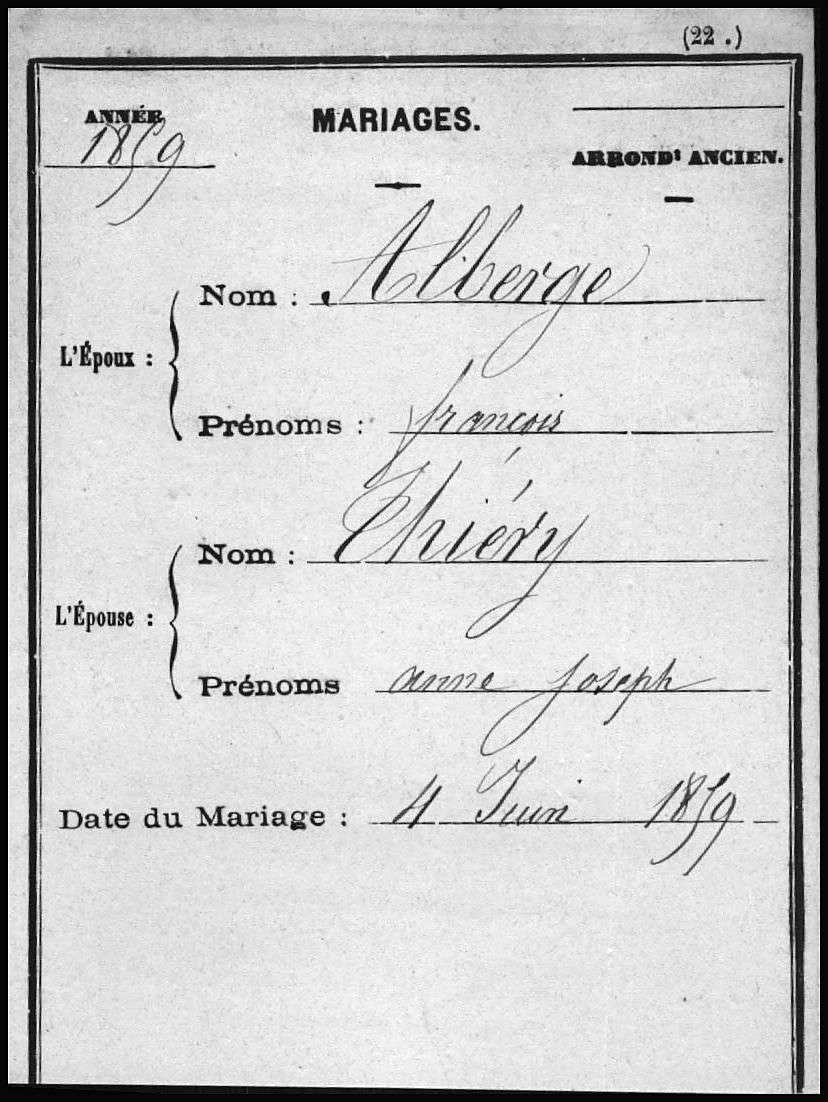 (22.)
ANNÉE
1859
MARIAGES.
ARRONDt ANCIEN.
L'Époux :
Nom : Alberge
Prénoms : françois
L'Épouse :
Nom : Thiéry
Prénoms anne Joseph
Date du Mariage : 4 Juin 1859